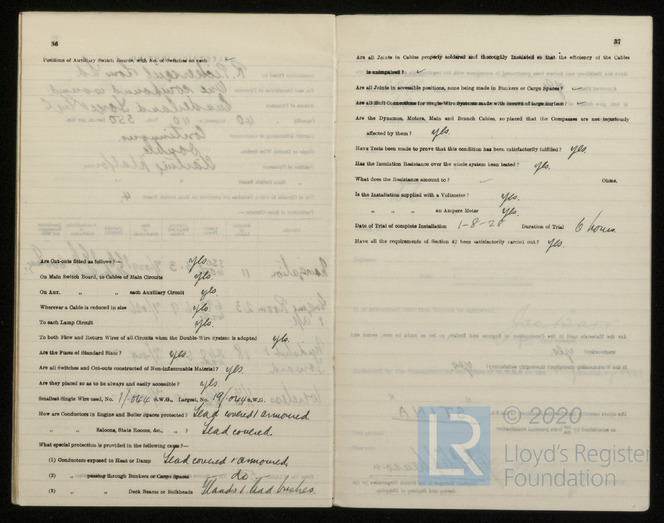 36
Positions of Auxiliary Switch Boards, with No. of Switches on each
Are Cut-outs fitted as follows?— Yes.
On Main Switch Board, to Cables of Main Circuits Yes.
On Aux. " " each Auxiliary Circuit Yes.
Wherever a Cable is reduced in size Yes.
To each Lamp Circuit Yes.
To both Flow and Return Wires of all Circuits when the Double-Wire System is adopted Yes.
Are the Fuses of Standard Sizes? Yes.
Are all Switches and Cut-outs constructed of Non-inflammable Material? Yes
Are they placed so as to be always and easily accessible? Yes.
Smallest Single Wire used, No. 1/.044 S.W.G., Largest, No. 19/.044 S.W.G.
How are Conductors in Engine and Boiler Spaces protected? Lead covered & armoured
" " Saloons, State Rooms, &c., " ? Lead covered.
What special protection is provided in the following cases?—
(1) Conductors exposed to Heat or Damp Lead covered & armoured.
(2) " passing through Bunkers or Cargo Spaces do
(3) " " Deck Beams or Bulkheads Glands & lead bushes.
37
Are all Joints in Cables properly soldered and thoroughly insulated so that the efficiency of the Cables
is unimpaired?
Are all Joints in accessible positions, none being made in Bunkers or Cargo Spaces?
Are all Hull Connections for Single-Wire Systems made with Screws of large surface?
Are the Dynamos, Motors, Main and Branch Cables, so placed that the Compasses are not injuriously
affected by them? Yes.
Have Tests been made to prove that this condition has been satisfactorily fulfilled? Yes.
Has the Insulation Resistance over the whole system been tested? Yes.
What does the Resistance amount to? — Ohms.
Is the Installation supplied with a Voltmeter? Yes.
" " " an Ampere Meter Yes.
Date of Trial of complete Installation 1-8-28 Duration of Trial 6 hours.
Have all the requirements of Section 42 been satisfactorily carried out? Yes.
LR
© 2020
Lloyd's Register
Foundation